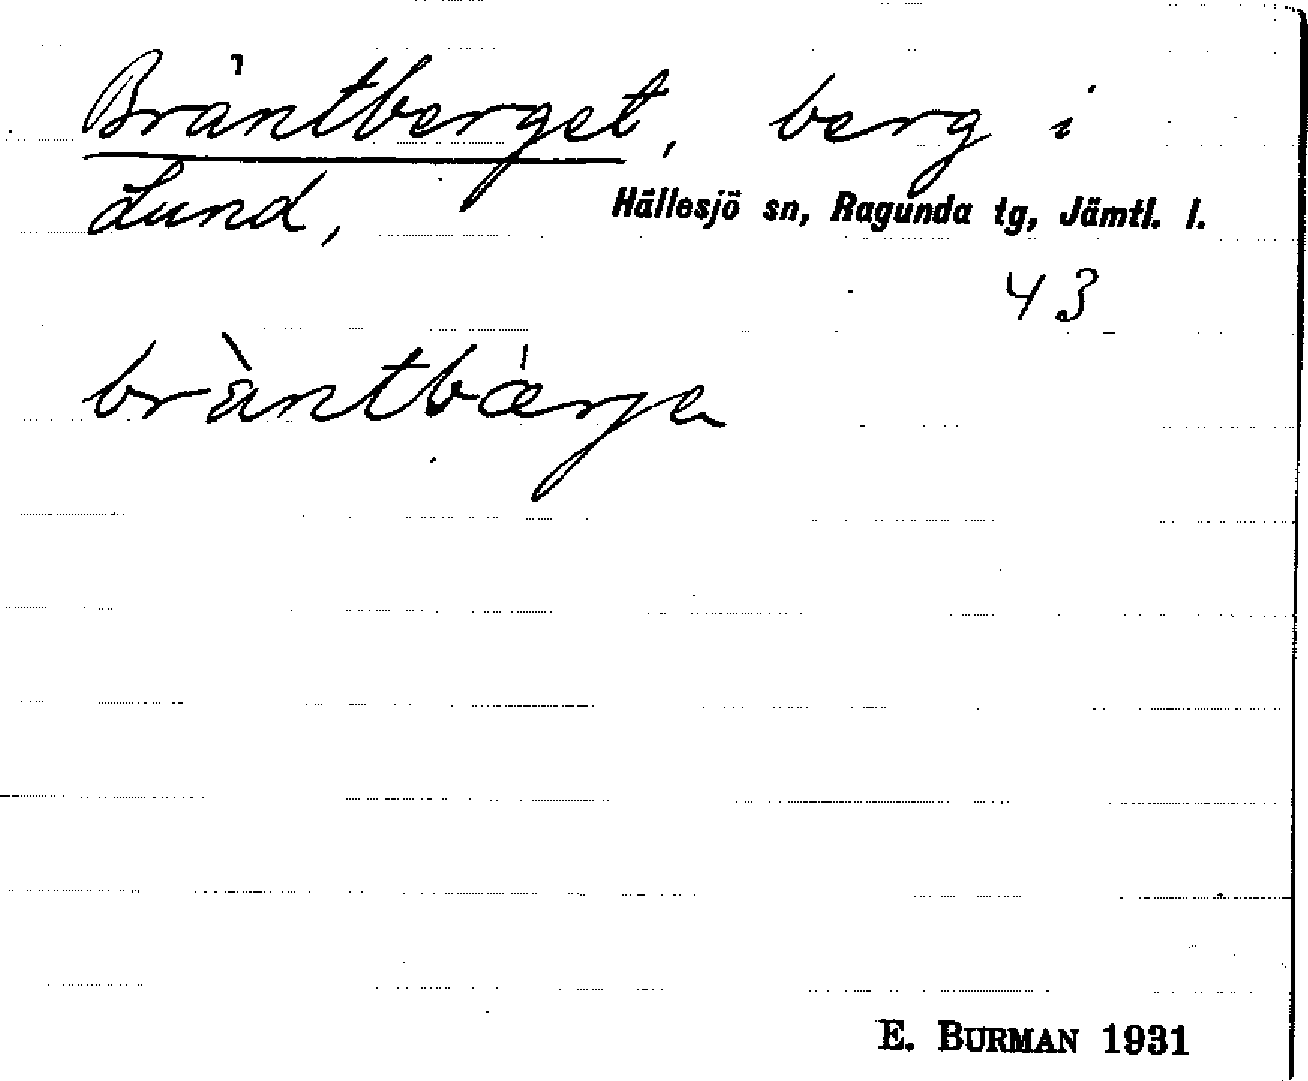 Bräntberget, berg i
Lund, Hällesjö sn, Ragunda tg, Jämtl. l.
43
bràntbárja
E. BURMAN 1931